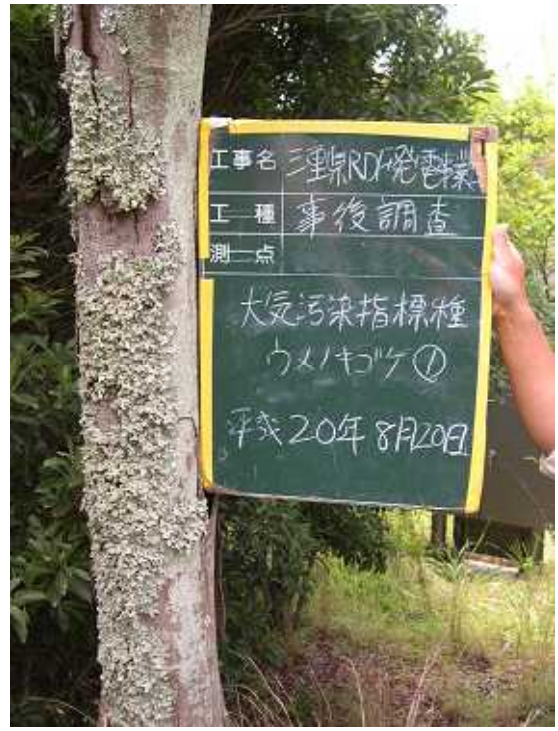 工事名 三重県RDF発電事業
工種 事後調査
測点
大気汚染指標種
ウメノキゴケ①
平成20年8月20日